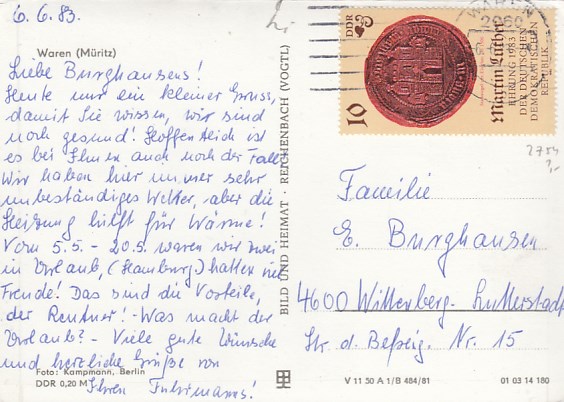 6.6.83.
Waren (Müritz)
Liebe Burghausens!
Heute nur ein kleiner Gruss,
damit Sie wissen, wir sind
noch gesund! Hoffentlich ist
es bei Ihnen auch noch der Fall.
Wir haben hier immer sehr
unbeständiges Wetter, aber die
Heizung hilft für Wärme!
Vom 5.5. - 20.5. waren wir zwei
in Urlaub, (Hamburg) hatten viel
Freude! Das sind die Vorteile,
der Rentner! - Was macht der
Urlaub? - Viele gute Wünsche
und herzliche Grüße von
Ihren Fuhrmanns!
Foto: Kampmann, Berlin
DDR 0,20 M
BILD UND HEIMAT · REICHENBACH (VOGTL)
DDR
10
Martin Luther
EHRUNG 1983
DER DEUTSCHEN
DEMOKRATISCHEN
REPUBLIK
WAREN
2060
2754
Familie
E. Burghausen
4600 Wittenberg-Lutterstadt
Str. d. Befreig. Nr. 15
V 11 50 A 1/B 484/81
01 03 14 180